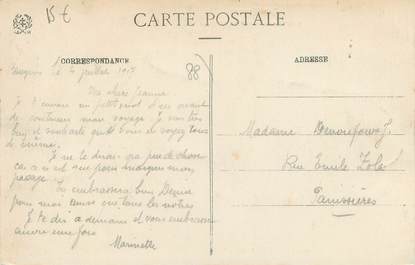 15 €
CARTE POSTALE
CORRESPONDANCE
ADRESSE
88
le 4 juillet 1917
Ma chère Jeanne
Je t'envoie un petit mot avant
de continuer mon voyage. Je
bien et souhaite que vous soyez tous
de même.
Je ne te dirais pas grande chose
car c'est que pour marquer mon
passage.
Tu embrasseras bien Denise
pour moi ainsi que tous les nôtres
Je te dis à demain et vous embrasse
encore une fois
Marinette
Madame
Rue Emile Zola
Panissières